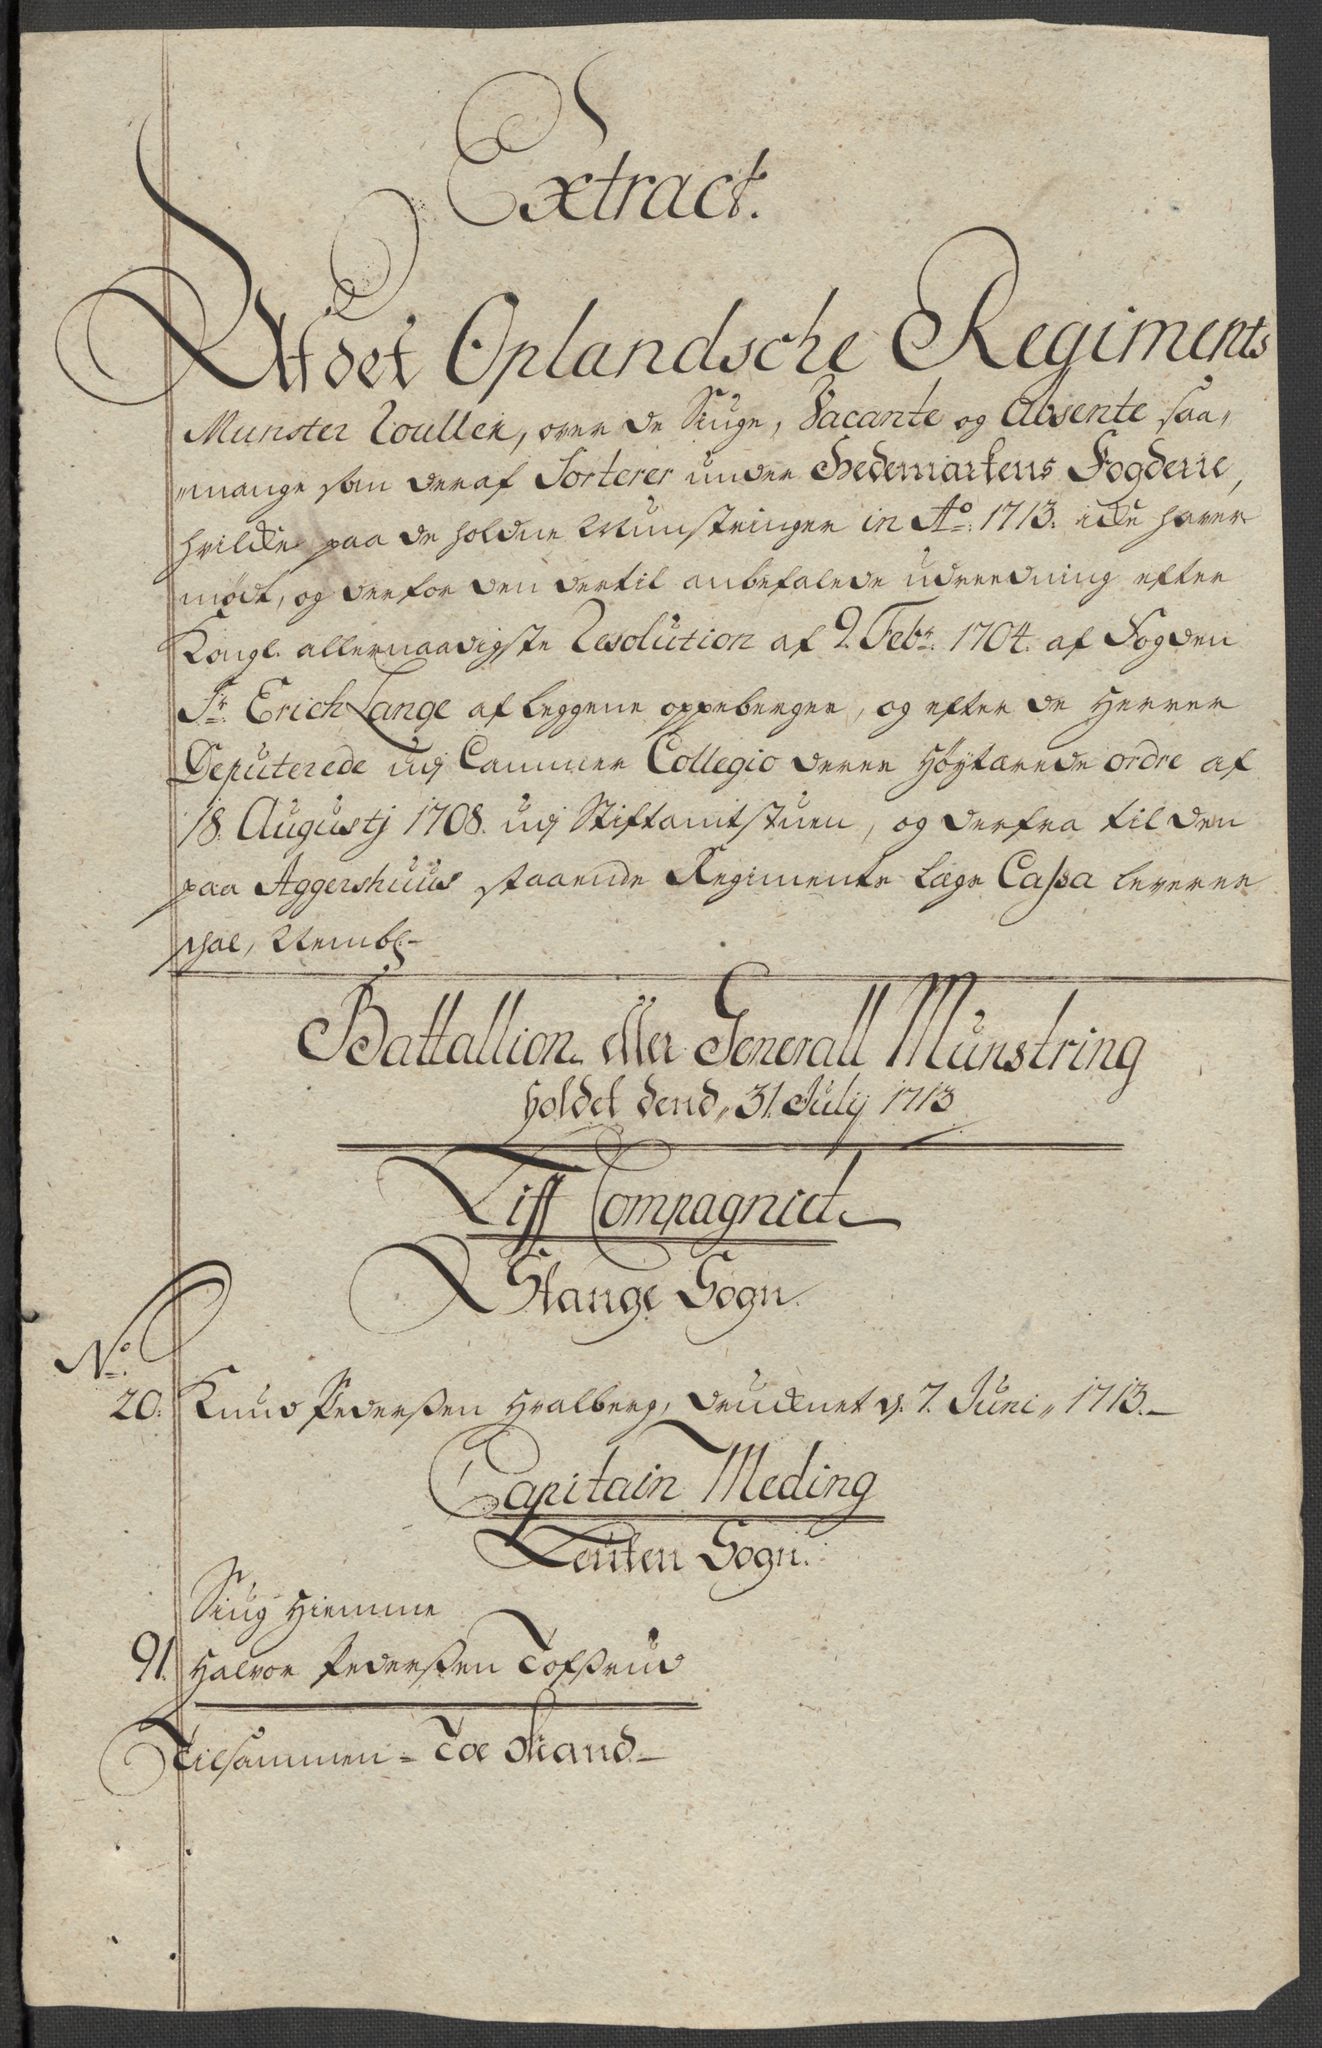 Extract.
Af det Oplandsche Regiments
Munster Rouller, over de Siuge, Vacante og Absente saa,,
,,mange som deraf Sorterer under Hedemarkens Fogderie,
hvilcke paa de holdne Munstringer in Aº: 1713. icke haver
mødt, og derfor den dertil anbefalede udreedning efter
Kongl. allernaadigste Resolution af 9. Febr: 1704. af Fogden
Sr. Erich Lange af leggene oppeberger, og efter de Herrer
Deputerede udj Cammer Collegio deres Høytærede ordre af
18. Augustj 1708. udj Stiftamtstuen, og derfra til den
paa Aggershuus staaende Regiments Læge Cassa leverer
skal, Nembl-
Battallion eller Generall Munstring
holdet dend,, 31. July 1713
Liff Compagniet
Stange Sogn.
Nº.
20. Knud Pederßen Hvalberg, drucknet d. 7. Juni,, 1713.
Capitain Meding
Leuten Sogn.
Siug hiemme
91. Halvor Pederßen Tofsrud
Tilsammen = Toe Mand